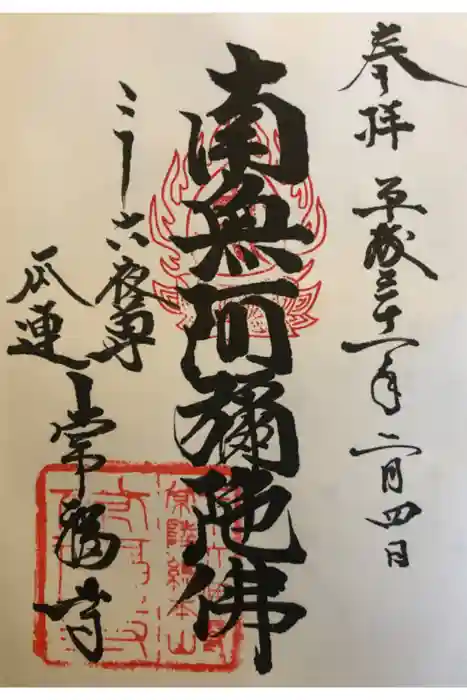 奉拝 平成三十一年二月四日
南無阿彌陀佛
二十六夜尊
瓜連 常福寺
常陸總本山